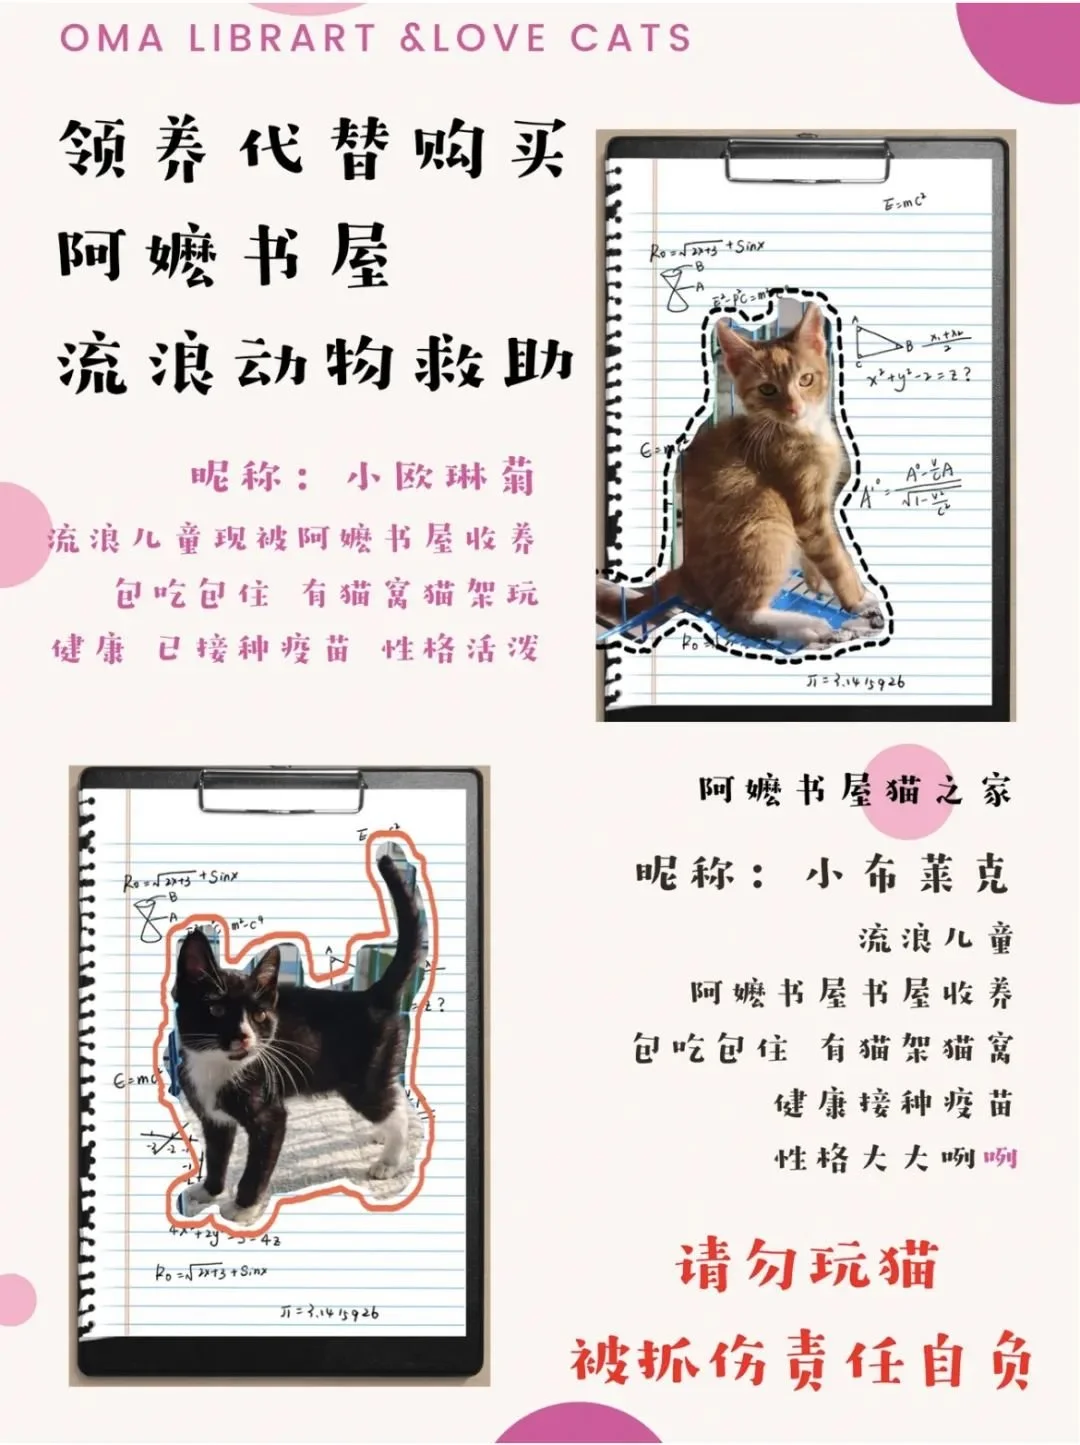 OMA LIBRART &LOVE CATS
领养代替购买
阿嬷书屋
流浪动物救助
昵称：小欧琳菊
流浪儿童现被阿嬷书屋收养
包吃包住 有猫窝猫架玩
健康 已接种疫苗 性格活泼
E=mc²
R₀=√2x+3 +Sinx
B
A
A
B
C
x₁+x₂/2
x²+y²-2=z?
π=3.1415926
阿嬷书屋猫之家
昵称：小布莱克
流浪儿童
阿嬷书屋书屋收养
包吃包住 有猫架猫窝
健康接种疫苗
性格大大咧咧
R₀=√2x+3 +Sinx
B
A
E=mc²
R₀=√2x+3 +Sinx
π=3.1415926
请勿玩猫
被抓伤责任自负